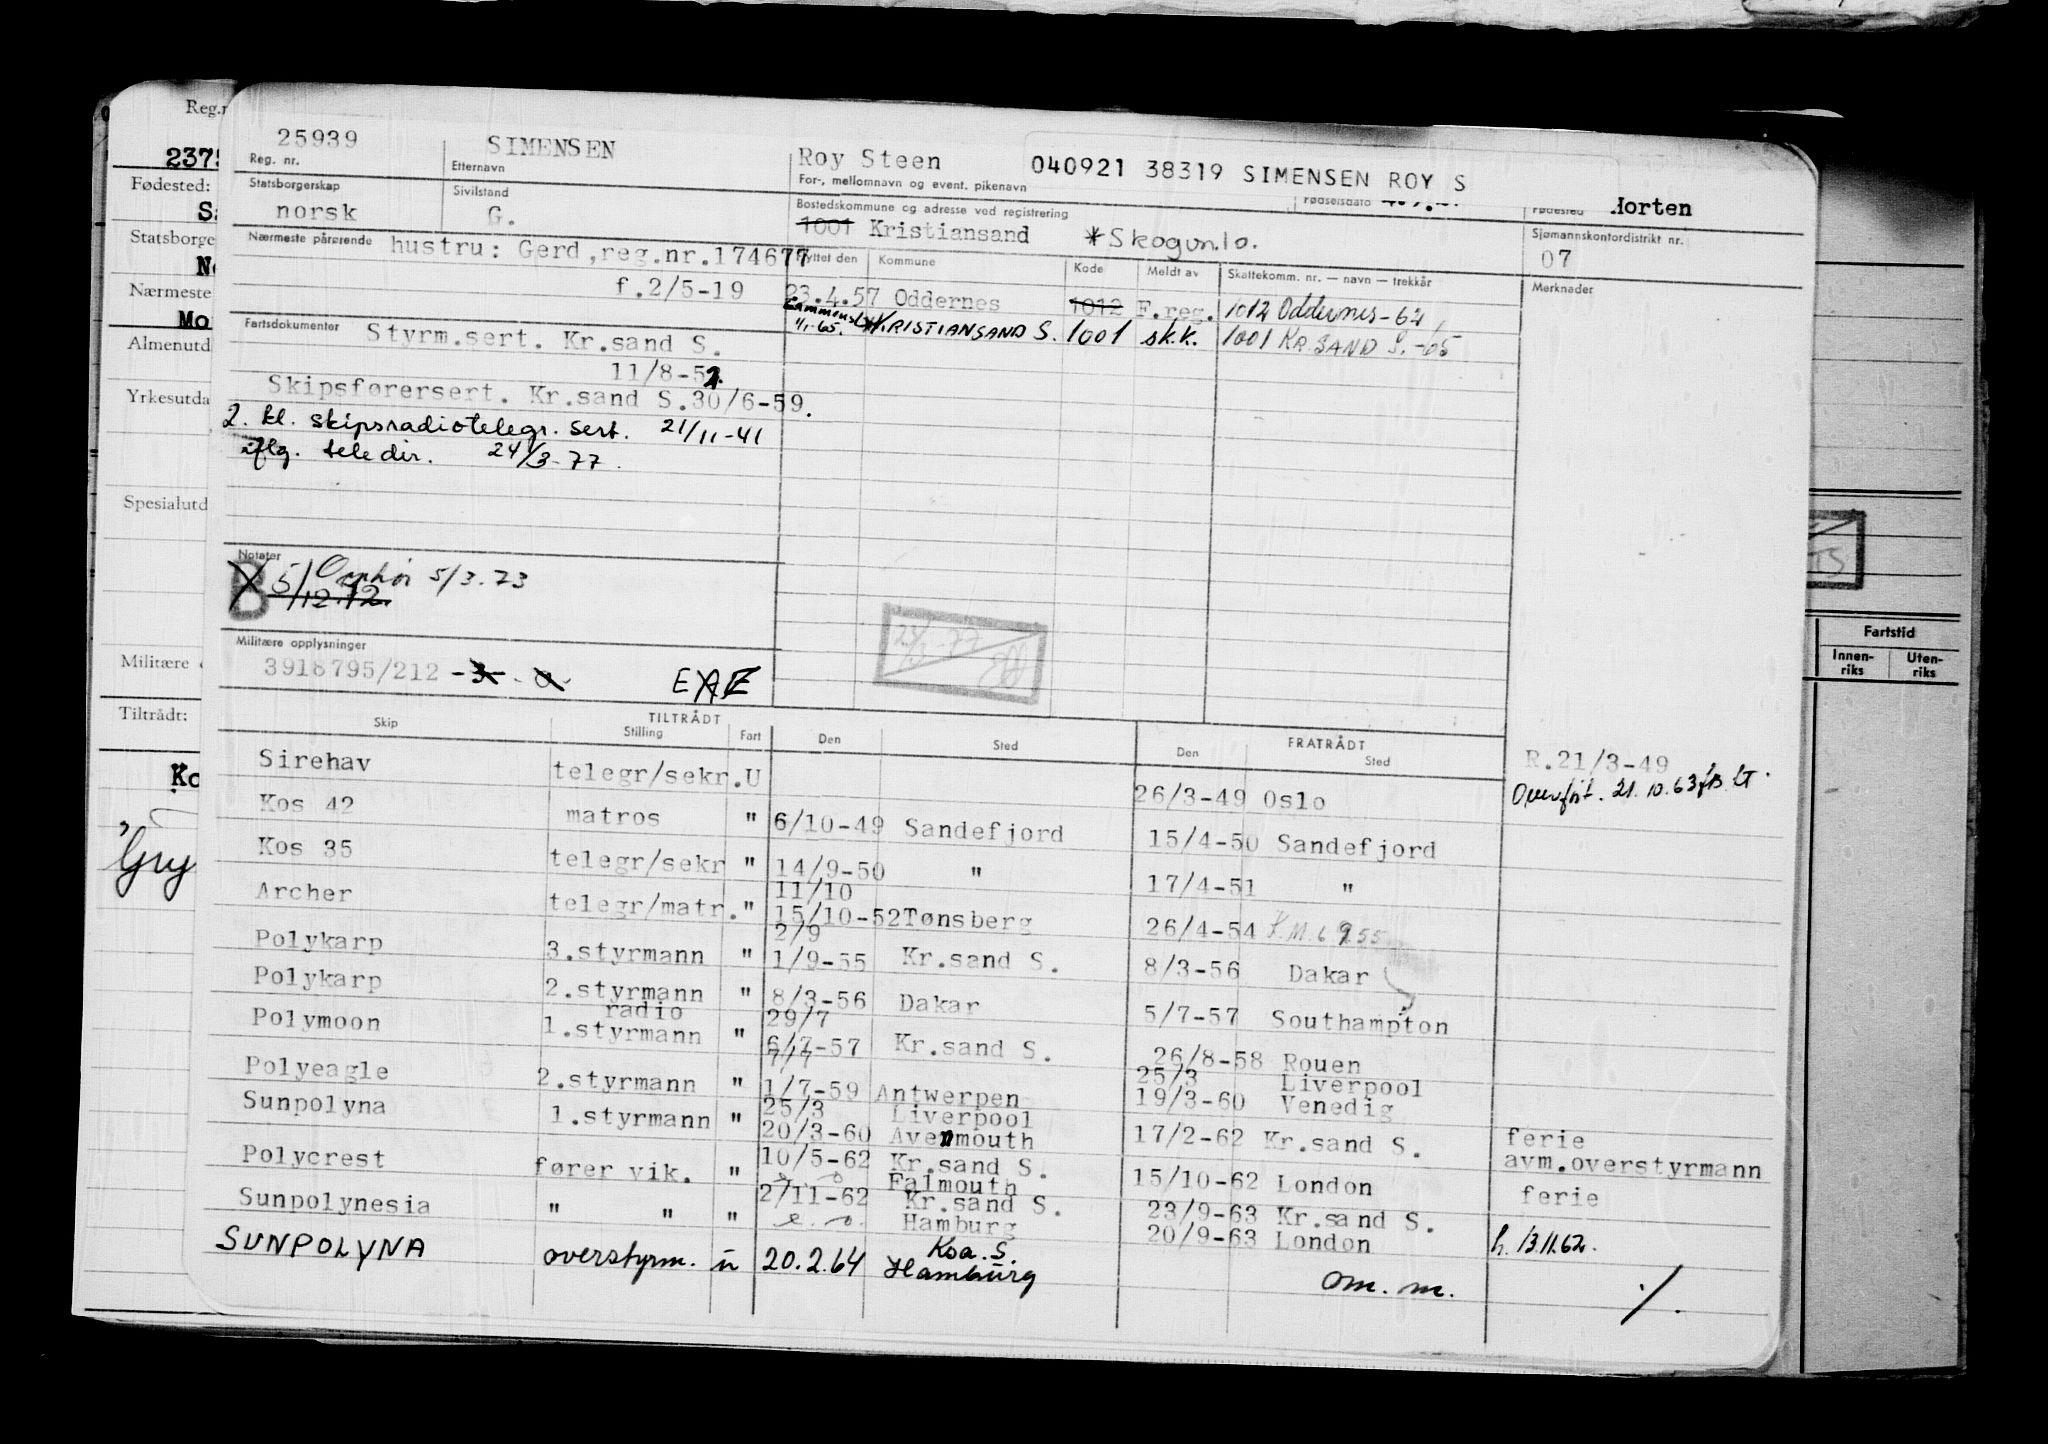 25939 SIMENSEN Roy Steen 040921 38319 SIMENSEN ROY S
Reg. nr. Etternavn For-, mellomnavn og event. pikenavn Fødselsdato Fødested Horten
Statsborgerskap Sivilstand Bostedskommune og adresse ved registrering Sjømannskontordistrikt nr.
norsk G. 1001 Kristiansand *Skogvn.10. 07
Nærmeste pårørende hustru: Gerd,reg.nr.174677 Flyttet den Kommune Kode Meldt av Skattekomm. nr. — navn — trekkår Merknader
f.2/5-19 23.4.57 Oddernes 1012 F.reg. 1012 Oddernes-64
1/1-65. KRISTIANSAND S. 1001 sk.k. 1001 KR.SAND S.-65
Fartsdokumenter Styrm.sert. Kr.sand S.
11/8-52.
Skipsførersert. Kr.sand S.30/6-59.
2. kl. skipsradiotelegr. sert. 21/11-41
iflg. teledir. 24/3-77.
Notater
B 5/12.72. Opphør 5/3.73
Militære opplysninger
3918795/212
TILTRÅDT FRATRÅDT
Skip Stilling Fart Den Sted Den Sted
R.21/3-49
Overført. 21.10.63
Sirehav telegr/sekr.U 26/3-49 Oslo
Kos 42 matros " 6/10-49 Sandefjord 15/4-50 Sandefjord
Kos 35 telegr/sekr " 14/9-50 " 17/4-51 "
11/10
Archer telegr/matr. " 15/10-52 Tønsberg 26/4-54
2/9
Polykarp 3.styrmann " 1/9-55 Kr.sand S. 8/3-56 Dakar
Polykarp 2.styrmann " 8/3-56 Dakar 5/7-57 Southampton
radio 29/7
Polymoon 1.styrmann " 6/7-57 Kr.sand S. 26/8-58 Rouen
25/3 Liverpool
Polyeagle 2.styrmann " 1/7-59 Antwerpen 19/3-60 Venedig
25/3 Liverpool
Sunpolyna 1.styrmann " 20/3-60 Avenmouth 17/2-62 Kr.sand S. ferie
avm.overstyrmann
10/5-62 Kr.sand S.
Polycrest fører vik. " Falmouth 15/10-62 London
2/11-62 Kr.sand S. 23/9-63 Kr.sand S. ferie
Sunpolynesia " " " Hamburg 20/9-63 London h. 13.11.62.
SUNPOLYNA overstyrm. u 20.2.64 Hamburg om. m. ./.
Reg.n
Fødested:
Statsborge
Nærmeste
Mo
Almenutd
Yrkesutda
Spesialutd
Militære
Tiltrådt:
Ko
Fartstid
Innen-riks Uten-riks